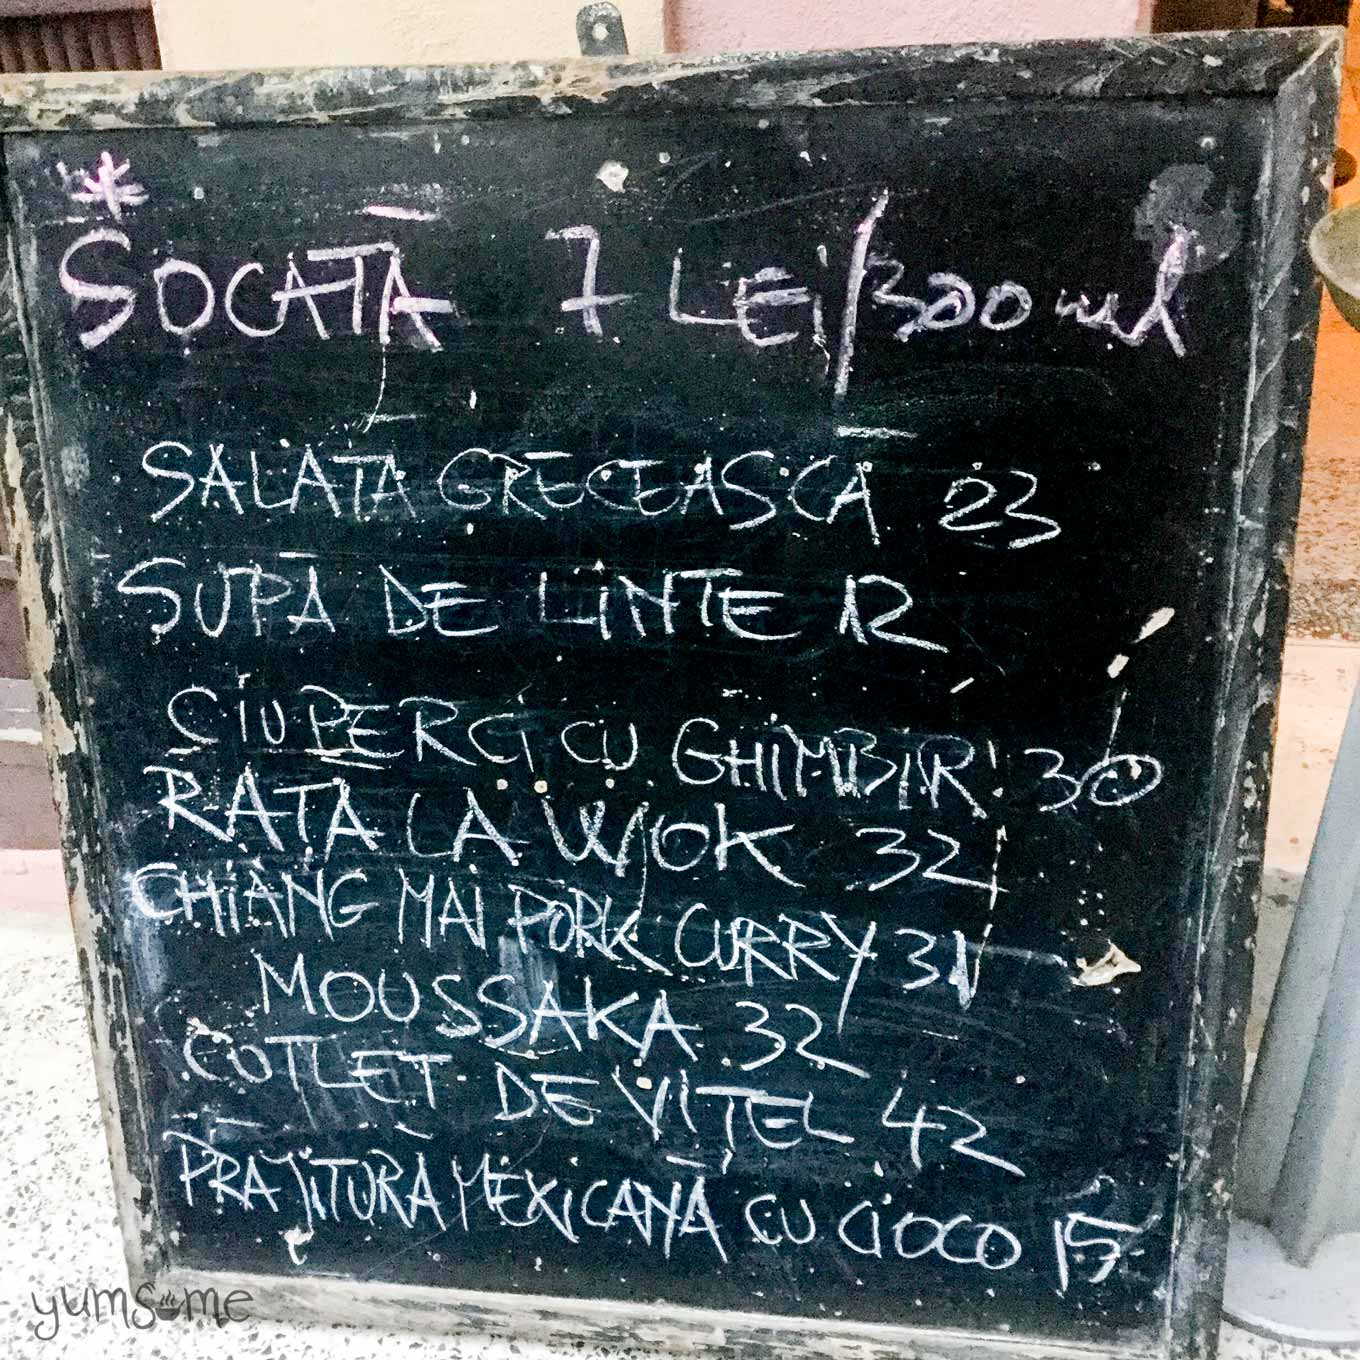 *
SOCATĀ 7 LEi/300 ml
SALATĀ GRECEASCĀ 23
SUPĀ DE LiNTE 12
CIUPERCi CU GHiMBIR 30
RAȚĀ LA WOK 32
CHiANG MAi PORK CURRY 31
MOUSSAKA 32
COTLET DE VIȚEL 42
PRĀJiTURĀ MEXiCANĀ CU CiOCO 15
yumsome